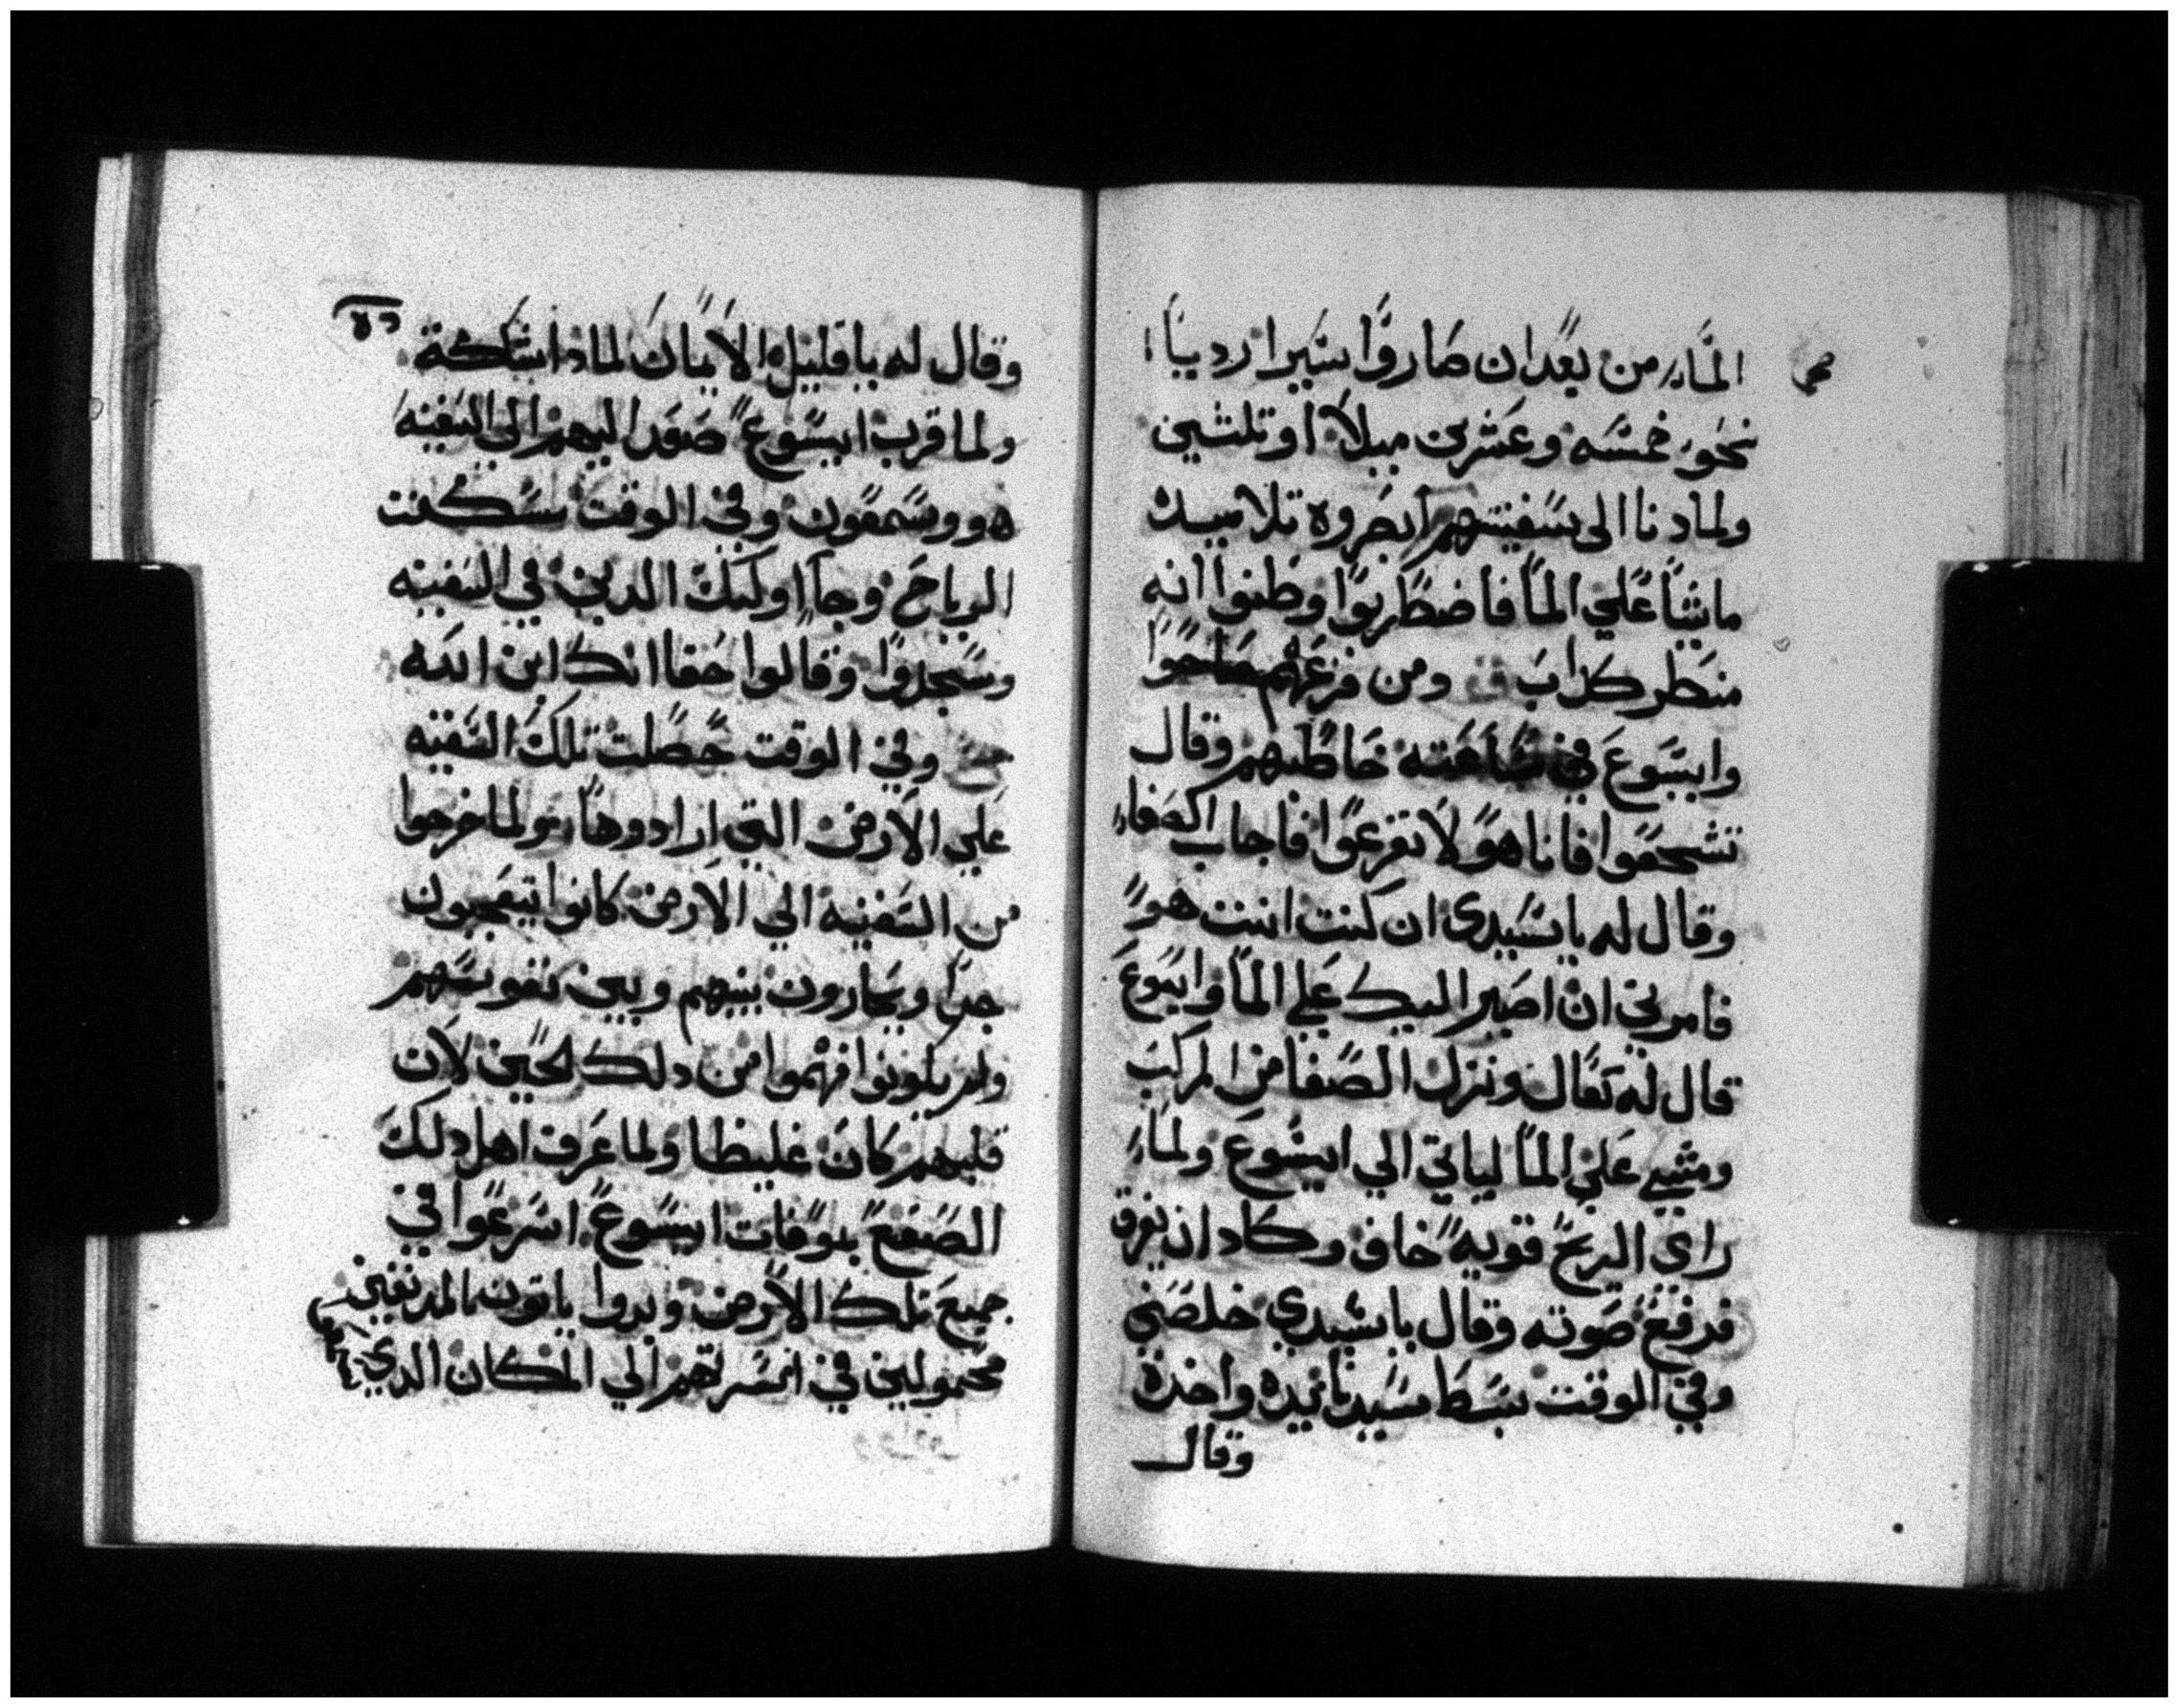 الماء من بعد ان صاروا سيرا رديا
نحو خمسه وعشرين ميلا او تلتين
ولما دنا الى سفينتهم ابصروه تلاميده
ماشيا علي الما فاضطربوا وظنوا انه
منظر كداب ومن فزعهم صاحوا
وايسوع في ساعته خاطبهم وقال
تشجعوا فانا هو لا تفزعوا فاجاب الصفاء
وقال له يا سيدي ان كنت انت هو
فامرني ان اصير اليك علي الما وايسوع
قال له تعال ونزل الصفا من المركب
ومشي علي الما لياتي الي ايسوع ولما
راي الريح قويه خاف وكاد ان يغرق
فرفع صوته وقال يا سيدي خلصني
وفي الوقت بسط سيدنا يده واخده
وقال
وقال له يا قليل الايمان لمادا شككة
ولما قرب ايسوع صعد اليهم الى السفينه
هو وسمعون وفي الوقت سكنت
الرياح وجا اوليك الدين في السفينه
وسجدوا وقالوا حقا انك ابن الله
وفي الوقت حصلت تلك السفينه
علي الارض التي ارادوها ولما خرجوا
من السفينه الي الارض كانوا يتعجبون
جدا ويحارون بينهم وبين نفوسهم
ولم يكونوا فهموا من دلك الحين لان
قلبهم كان غليظا ولما عرف اهل دلك
الصقع بموفات ايسوع اسرعوا في
جميع تلك الارض وبدوا ياتون بالمدنفين
محمولين في اسرتهم الي المكان الدي